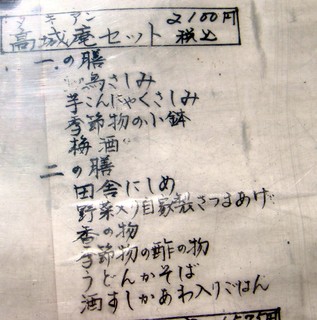 2100円
高城庵セット 税込
一の膳
鳥さしみ
芋こんにゃくさしみ
季節物の小鉢
梅酒
二の膳
田舎にしめ
野菜入り自家製さつまあげ
香の物
季節物の酢の物
うどんかそば
酒すしかあわ入りごはん
1575円